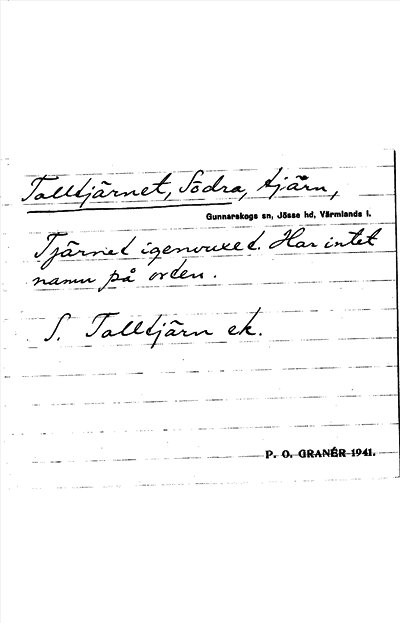 Talltjärnet, Södra, tjärn,
Gunnarskogs sn, Jösse hd, Värmlands l.
Tjärnet igenvuxet. Har intet
namn på orten.
S. Talltjärn ek.
P. O. GRANÉR 1941.